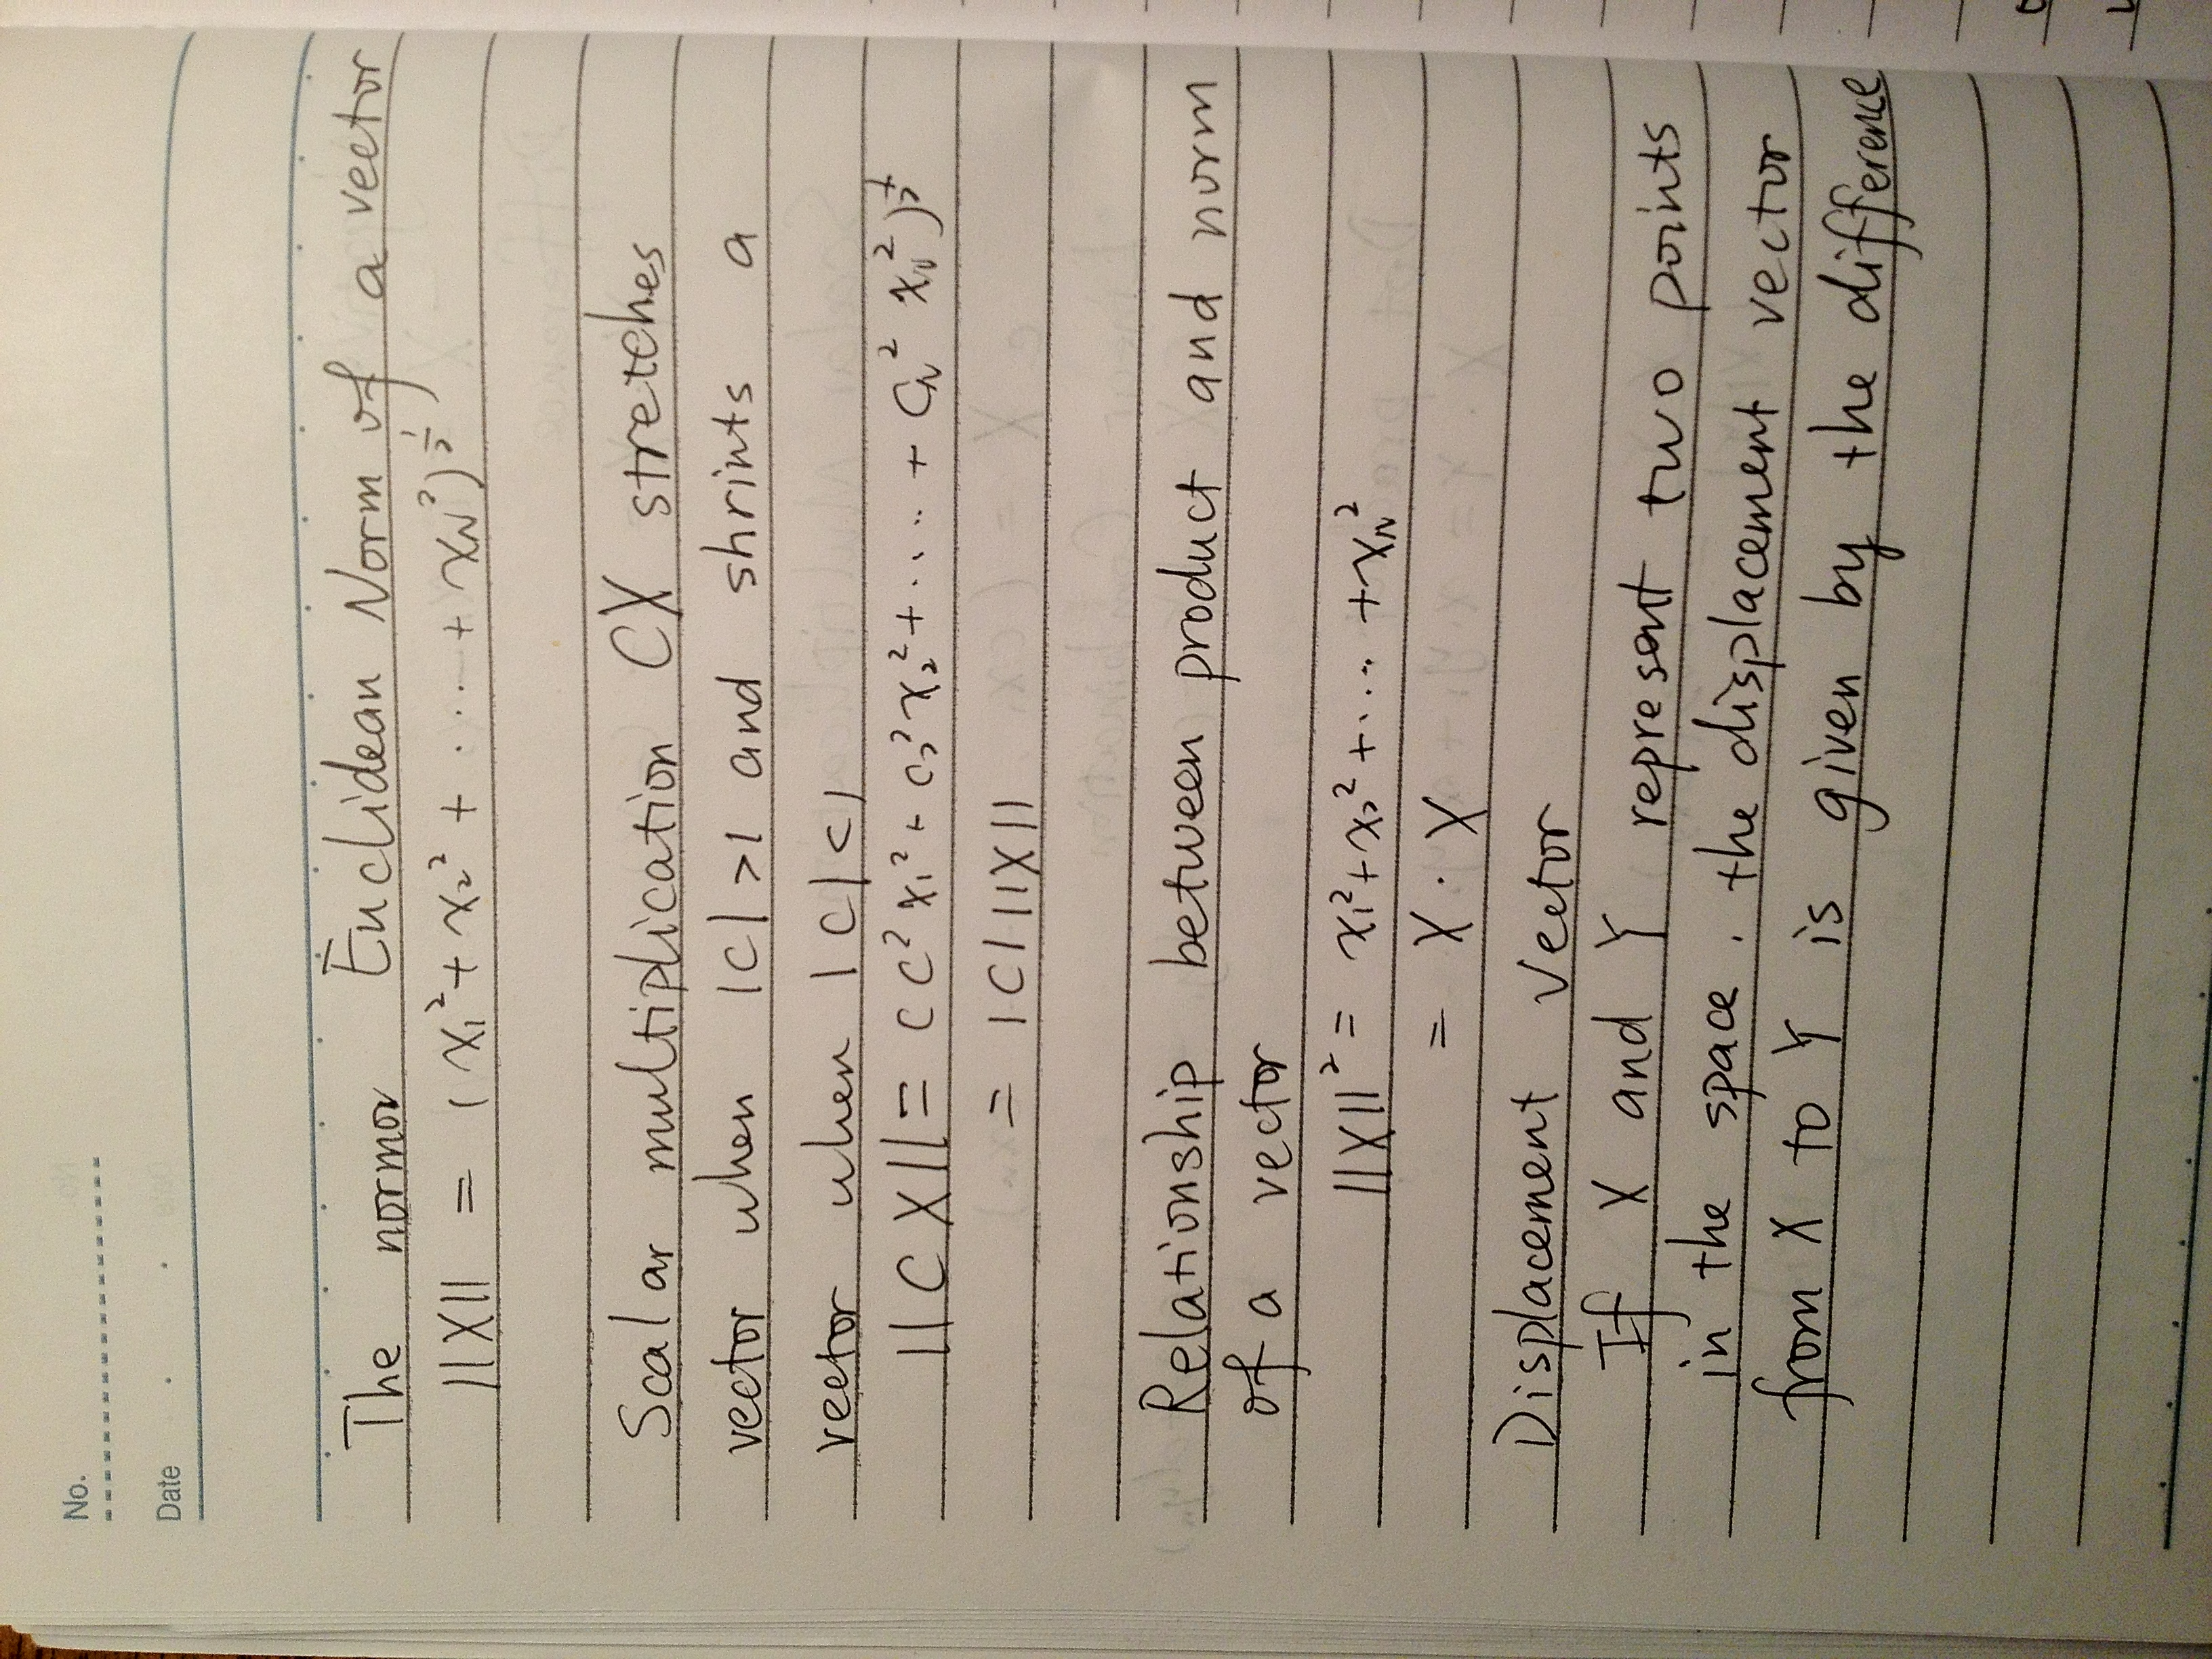 No.
Date
The normor Enclidean Norm of a vector
||X|| = (x₁² + x₂² + ... + x_N²)^½
Scalar multiplication CX stretches
vector when |c| > 1 and shrints a
vector when |c| < 1
||CX|| = (C² x₁² + c₂² x₂² + ... + C_N² x_N²)^½
= |C| ||X||
Relationship between product and norm
of a vector
||X||² = x₁² + x₂² + ... + x_N²
= X · X
Displacement vector
If X and Y represent two points
in the space, the displacement vector
from X to Y is given by the difference